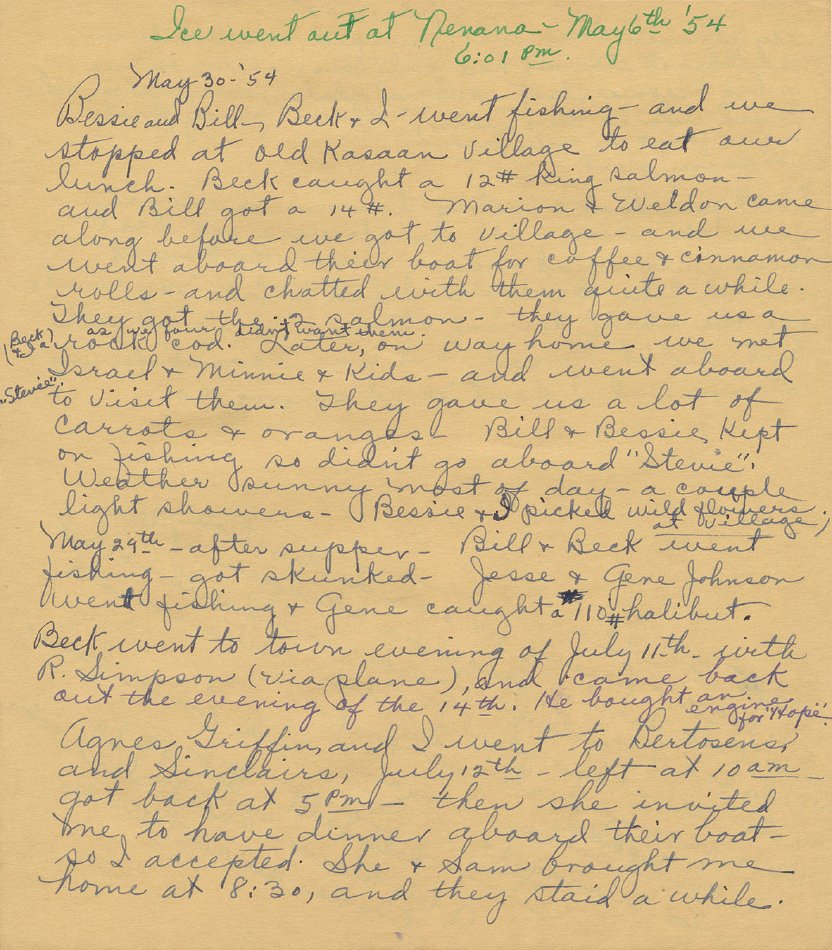 Ice went out at Nenana - May 6th '54
6:01 pm.
May 30 - '54
Bessie and Bill, Beck & I - went fishing - and we
stopped at old Kasaan Village to eat our
lunch. Beck caught a 12# King salmon -
and Bill got a 14#. Marion & Weldon came
along before we got to village - and we
went aboard their boat for coffee & cinnamon
rolls - and chatted with them quite a while.
They got the salmon - they gave us a
as we four didn't want them.
rock cod. Later, on way home we met
(Beck)
Israel & Minnie & Kids - and went aboard
"Stevie"
to visit them. They gave us a lot of
carrots & oranges - Bill & Bessie, Kept
on fishing so didn't go aboard "Stevie".
Weather sunny most of day - a couple
light showers - Bessie & I picked wild flowers
at village;
May 29th - after supper - Bill & Beck went
fishing - got skunked - Jesse & Gene Johnson
went fishing & Gene caught a 110# halibut.
Beck went to town evening of July 11th - with
R. Simpson (via plane), and came back
out the evening of the 14th. He bought an
engine
for "Hope".
Agnes Griffin, and I went to Bertosens,
and Sinclairs, July 12th - left at 10 am -
got back at 5 Pm - then she invited
me to have dinner aboard their boat -
so I accepted. She & Sam brought me
home at 8:30, and they staid a while.